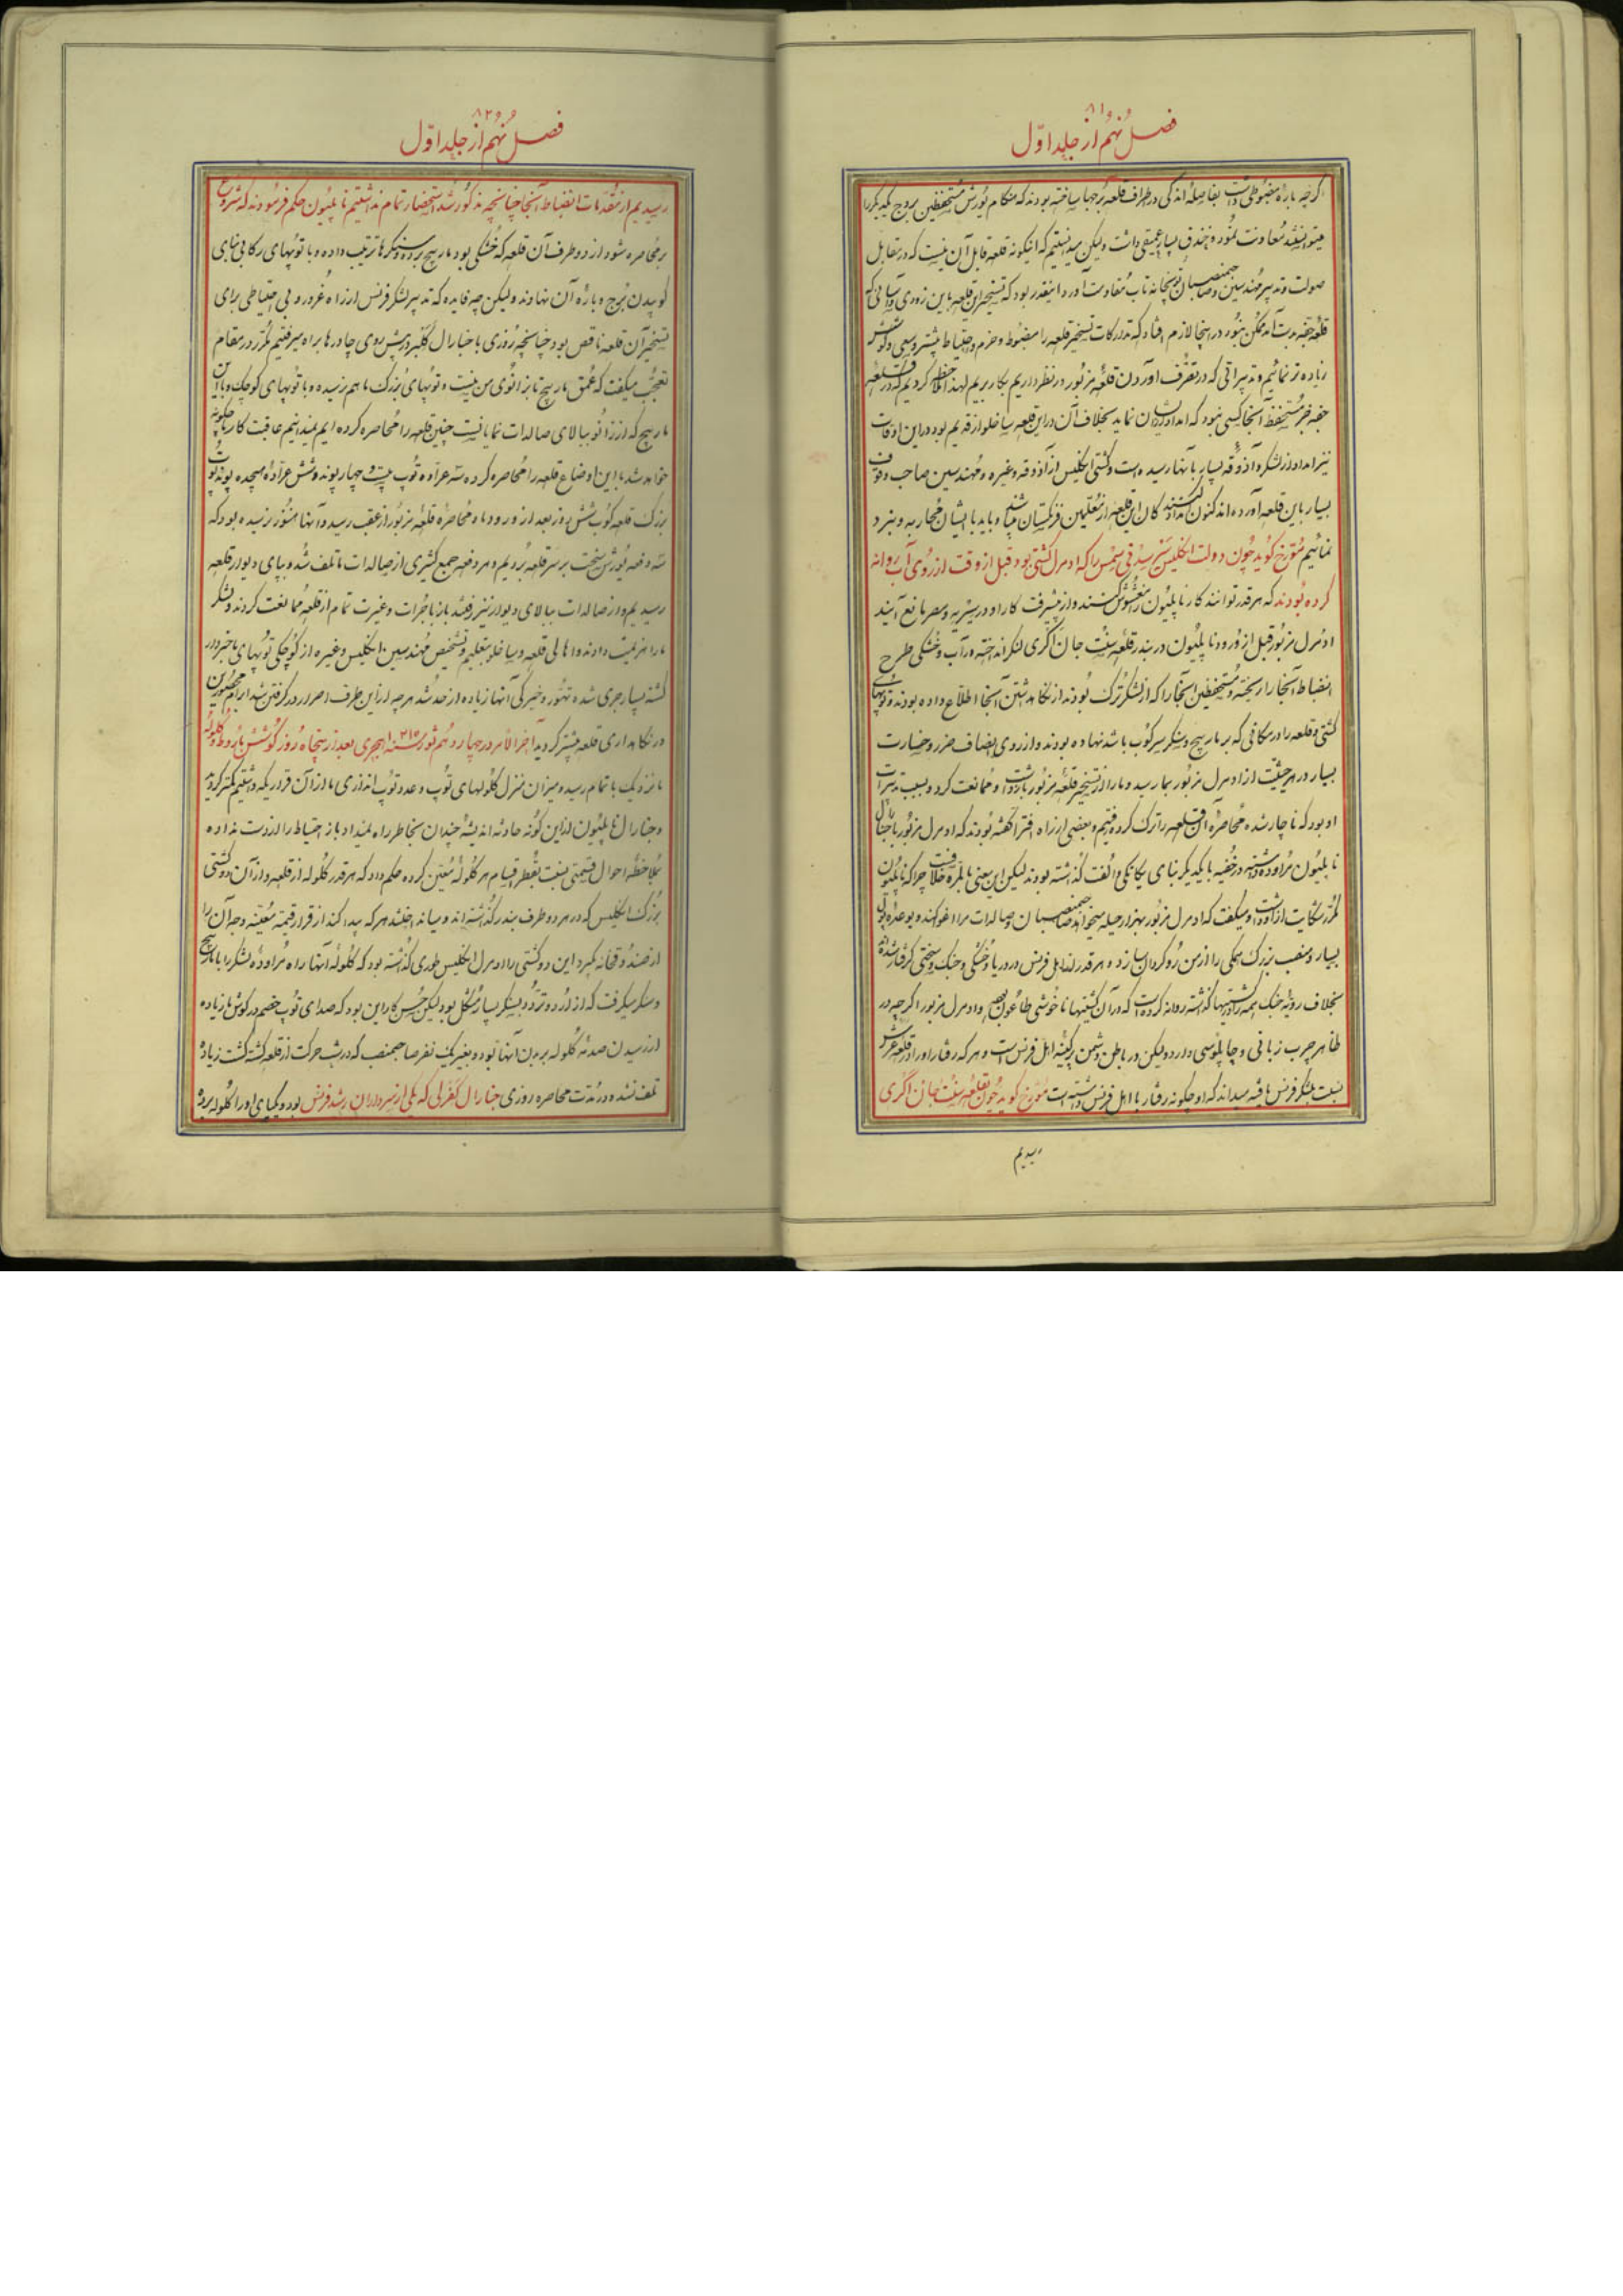 ۸۱
فصل نهم از جلد اول
اگرچه باره مضبوطی داشت بفاصله اندکی در اطراف قلعه برجها ساخته بودند که هنگام یورش مستحفظین بروج یکدیگر را
میتوانستند معاونت نمود و خندق بسیار عمیقی داشت ولیکن میدانستیم که اینگونه قلعه قابل آن نیست که در مقابل
صولت و تدبیر مهندسین و صاحبمنصبان توپخانه تاب مقاومت آورد اینقدر بود که تسخیر این قلعه باین زودی و آسانی که
قلعه جفه بدست آمد ممکن نبود در اینجا لازم افتاد که تدارکات تسخیر قلعه را مضبوط و حزم و احتیاط بیشتر و سعی و کوشش
زیاده تر نمائیم و تدبیراتی که در تصرف آوردن قلعه مزبور در نظر داریم بکار بریم لهذا ملاحظه کردیم که در قلعه
جفه جز مستحفظ آنجا کسی نبود که امداد ایشان نماید بخلاف آن در این قلعه ساخلو از قدیم بود در این اوقات
نیز امداد از لشکر و آذوقه بسیار بآنها رسیده است و کشتی انگلیس از آذوقه و غیره و مهندسین صاحب وقوف
بسیار باین قلعه آورده اند کنون امداد کنندگان این قلعه از معلمین فرنگستان میباشند و باید با ایشان محاربه و نبرد
نمائیم مورخ گوید چون دولت انگلیس سر سدنی سمس را که ادمرل کشتی بود قبل از وقت از روی آب روانه
کرده بودند که هر قدر توانند کار ناپلیون را مغشوش کنند و از پیشرفت کار او در سیریه و مصر مانع آیند
ادمرل مزبور قبل از ورود ناپلیون در بندر قلعه سنت جان اکری لنگر انداخته در آب و خشکی طرح
انضباط آنجا را ریخته و مستحفظین آنجا را که از لشکر ترک بودند از نگاهداشتن آنجا اطلاع داده بودند و توپهای
کشتی و قلعه را در مکانی که بر مارپیچ و سنگر سرکوب باشد نهاده بودند و از روی انصاف ضرر و خسارت
بسیار در هر حیثیت از ادمرل مزبور بما رسید و ما را از تسخیر قلعه مزبور بازداشت و ممانعت کرد و بسبب تدبیرات
او بود که ناچار شده محاصره آن قلعه را ترک کرده رفتیم و بعضی از راه افترا گفته بودند که ادمرل مزبور با جنارال
ناپلیون مراوده داشته در خفیه با یکدیگر بنای یگانگی و الفت گذاشته بودند لیکن این معنی بالمره خلافست چرا که ناپلیون
مکرر شکایت از او داشت و میگفت که ادمرل مزبور بهزار حیله میخواهد صاحبمنصبان و صالدات مرا اغوا کند و بوعده پول
بسیار و منصب بزرگ همگی را از من روگردان سازد و هر قدر از اهل فرنس در دریا و خشکی و جنگ و سختی گرفتار شده
بخلاف رویه جنگ همه را در کشتیها گذاشته روانه کرده است که در آن کشتیها ناخوشی طاعون بهم و ادمرل مزبور اگرچه در
ظاهر چرب زبانی و چاپلوسی دارد ولیکن در باطن دشمن پرکینه اهل فرنس است و هر که رفتار او را در قلعه عریش
نسبت بلشکر فرنس یافته میداند که او چگونه رفتار با اهل فرنس داشته است مورخ گوید چون بقلعه سنت جان اکری
رسیدیم
۸۲
فصل نهم از جلد اول
رسیدیم از مقدمات انضباط آنجا چنانچه مذکور شد استحضار تمام نداشتیم ناپلیون حکم فرمودند که شروع
بمحاصره شود از دو طرف آن قلعه که خشکی بود مارپیچ برده و سنگرها ترتیب داده و با توپهای رکابی بنای
کوبیدن برج و باره آن نهادند ولیکن چه فایده که تدبیر لشکر فرنس از راه غرور و بی احتیاطی برای
تسخیر آن قلعه ناقص بود چنانچه روزی با جنارال کلیبر در پیش روی چادرها براه میرفتیم مکرر در مقام
تعجب میگفت که عمق مارپیچ تا بزانوی من نیست و توپهای بزرگ ما هم نرسیده و با توپهای کوچک و با این
مارپیچ که از زانو ببالای صالدات نمایانست چنین قلعه را محاصره کرده ایم نمیدانیم عاقبت کار ما چگونه
خواهد شد با این اوضاع قلعه را محاصره کرده سه عراده توپ بیست و چهار پوند و شش عراده هیجده پوند توپ
بزرگ قلعه کوب شش روز بعد از ورود ما و محاصره قلعه مزبور از عقب رسید و آنها هنوز نرسیده بود که
سه دفعه یورش سخت بر سر قلعه بردیم و هر دفعه جمع کثیری از صالدات ما تلف شد و بپای دیوار قلعه
رسیدیم و از صالدات ببالای دیوار نیز رفتند باز با جرات و غیرت تمام از قلعه ممانعت کردند و لشکر
ما را هزیمت دادند و اهالی قلعه و ساخلو بتعلیم و تشخیص مهندسین انگلیس و غیره از کوچکی توپهای ما خبردار
گشته بسیار جری شده تهور و خیرگی آنها زیاده از حد شد هر چه از این طرف اصرار در گرفتن شد ابرام محصورین
در نگاهداری قلعه بیشتر گردید آخر الامر در چهاردهم ثور سنه ۱۲۱۵ هجری بعد از پنجاه روز کوشش باروط و گلوله
ما نزدیک باتمام رسید و میزان منزل گلولهای توپ و عدد توپ اندازی ما از آن قراریکه داشتیم کمتر گردید
و جنارال ناپلیون از این گونه حادثه اندیشه چندان بخاطر راه نمیداد باز احتیاط را از دست نداده
بملاحظه احوال قیمتی بنسبت بقطر اقسام هر گلوله معین کرده حکم داد که هر قدر گلوله از قلعه و از آن دو کشتی
بزرگ انگلیس که در هر دو طرف بندر گذاشته اند و میانه انداختند هر که پیدا کند از قرار قیمة معینه وجه آن را
از صندوقخانه بگیرد این دو کشتی را ادمرل انگلیس طوری گذاشته بود که گلوله آنها راه مراوده لشکر را با مارپیچ
و سنگر میگرفت که از اردو تردد بسنگر بسیار مشکل بود لیکن حسن کار این بود که صدای توپ خصم در گوش ما زیاده
از رسیدن صدمه گلوله بر بدن آنها نبود و بغیر یک نفر صاحبمنصب که در شب حرکت از قلعه کشته گشت زیاده
تلف نشد و در مدت محاصره روزی جنارال کفرلی که یکی از سرداران رشد فرنس بود و یکپای او را گلوله برده